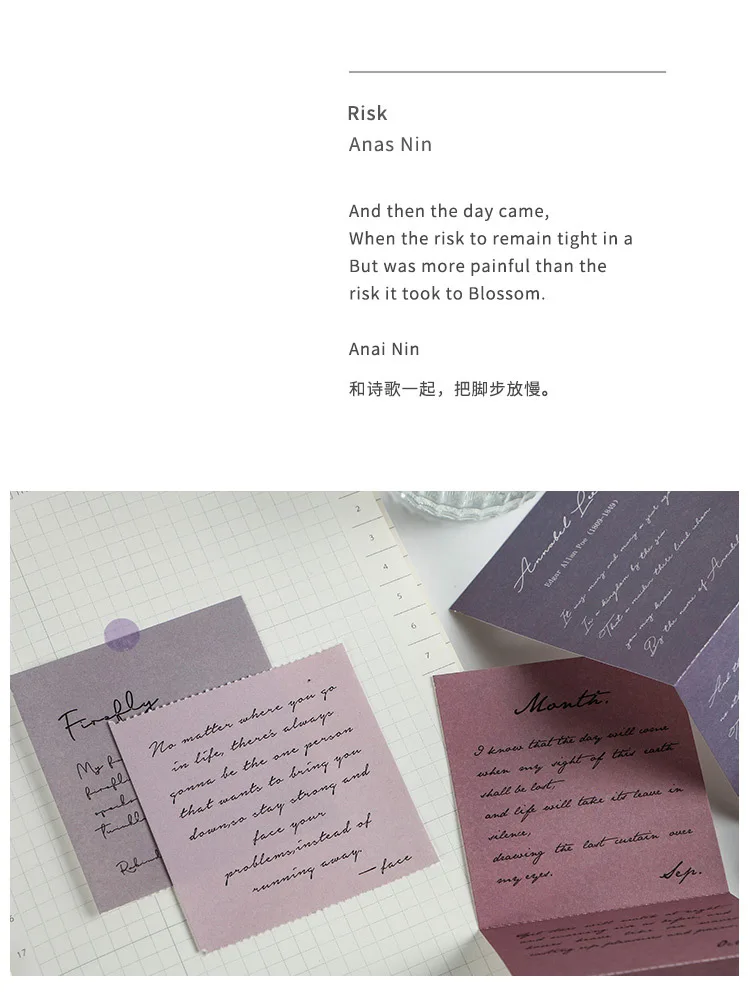 Risk
Anas Nin
And then the day came,
When the risk to remain tight in a
But was more painful than the
risk it took to Blossom.
Anai Nin
和诗歌一起，把脚步放慢。
2
3
4
5
6
7
17
Annabel Lee
Edgar Allan Poe (1809-1849)
It was many and many a year
In a kingdom by the sea
That a maiden there lived whom
you may know
By the name of Annabel
Firefly
My
No matter where you go
in life, there's always
gonna be the one person
that wants to bring you
down,so stay strong and
face your
problems,instead of
running away.
— face
Month.
I know that the day will come
when my sight of this earth
shall be lost,
and life will take its leave in
silence,
drawing the last curtain over
my eyes.
Sep.